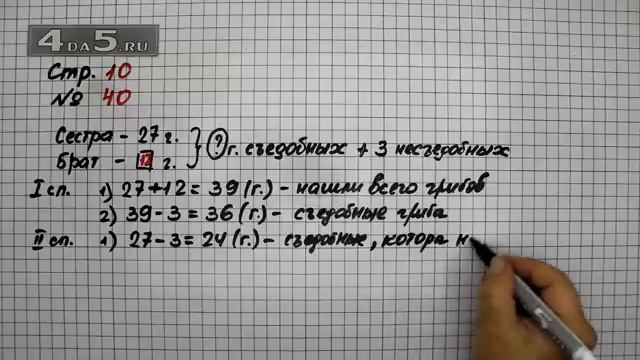 4DA5.RU
Стр. 10
№ 40
Сестра - 27 г.
Брат - 12 г.
? г. съедобных + 3 несъедобных
I сп. 1) 27 + 12 = 39 (г.) - нашли всего грибов
2) 39 - 3 = 36 (г.) - съедобные гриба
II сп. 1) 27 - 3 = 24 (г.) - съедобные, котора н